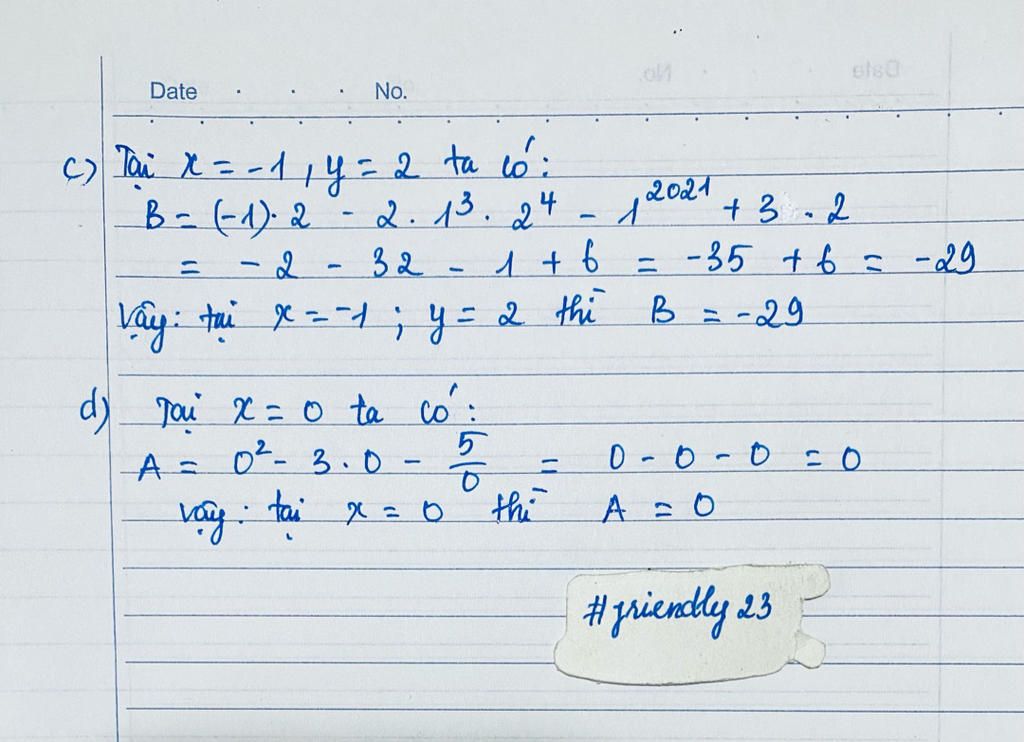 Date . . . No.
c) Tại x = -1, y = 2 ta có:
B = (-1). 2 - 2. 1³. 2⁴ - 1²⁰²¹ + 3 . 2
= - 2 - 32 - 1 + 6 = -35 + 6 = -29
Vậy: tại x = -1 ; y = 2 thì B = -29
d) Tại x = 0 ta có:
A = 0² - 3 . 0 - 5/0 = 0 - 0 - 0 = 0
Vậy: tại x = 0 thì A = 0
#friendly 23